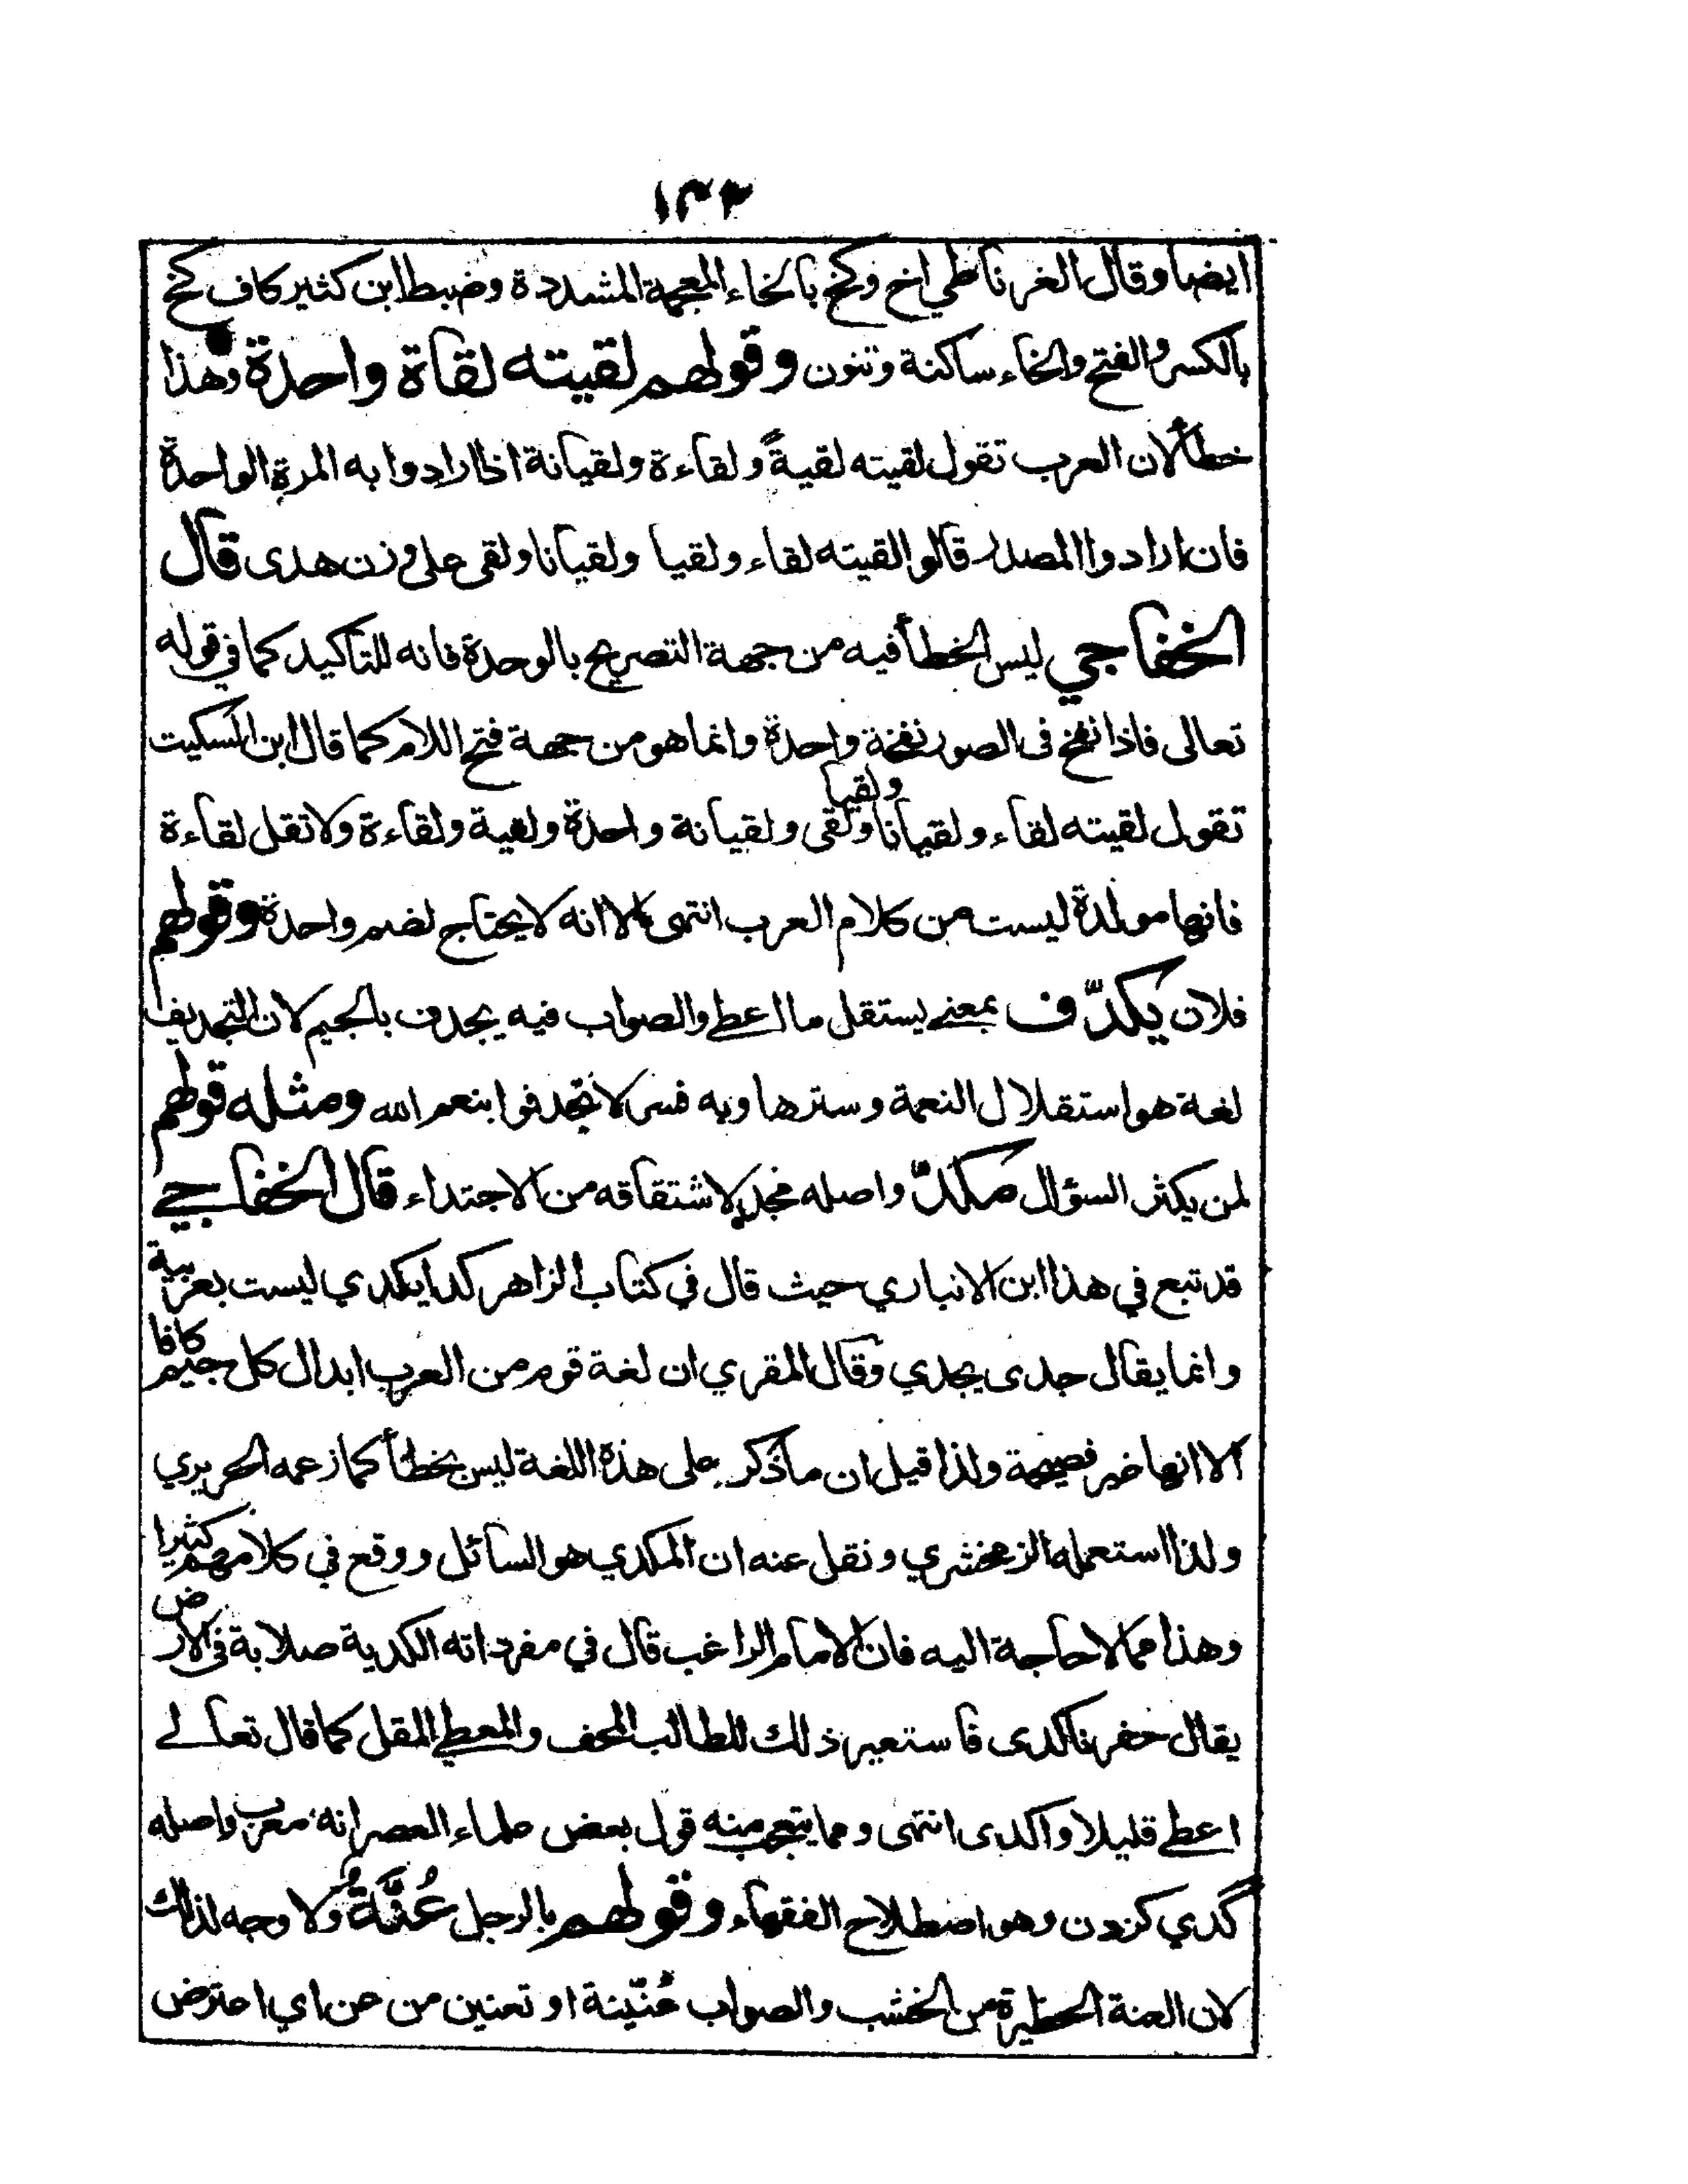 ١٣٢
ايضا وقال الغرناطي اخ وكخ بالخاء المعجمة المشددة وضبط ابن كثير كاف كخ
بالكسر والفتح والخاء ساكنة وتنون وقولهم لقيته لقاة واحدة وهذا
خطألان العرب تقول لقيته لقيةً ولقاءة ولقيانة اذا ارادوا به المرة الواحدة
فان ارادوا المصدر قالوا لقيته لقاء ولقيا ولقيانا ولقى على وزن هدى قال
الخفاجي ليس الخطأ فيه من جهة التصريح بالوحدة فانه للتأكيد كما في قوله
تعالى فاذا نفخ فى الصور نفخة واحدة وانما هو من جهة فتح اللام كما قال ابن السكيت
تقول لقيته لقاء ولقيانا ولقيا ولقى ولقيانة واحدة ولقية ولقاءة ولا تقل لقاءة
فانها مولدة ليست من كلام العرب انتهى الا انه لا يحتاج لضم واحدة وقولهم
فلان يكدّف بمعنے يستقل ما اعطے والصواب فيه يجدف بالجيم لان التجديف
لغة هو استقلال النعمة وسترها وبه فسر لا تجدفوا بنعم الله ومثله قولهم
لمن يكثر السؤال مكدّ واصله مجدٍ لاشتقاقه من الاجتداء قال الخفاجے
قد تبع في هذا ابن الانباري حيث قال في كتاب الزاهر كدا يكدي ليست بعربية
وانما يقال جدى يجدي وقال المقري ان لغة قوم من العرب ابدال كل جيم كافا
الا انها غير فصيحة ولذا قيل ان ما ذكر على هذة اللغة ليس بخطأ كما زعمه الحريري
ولذا استعمله الزمخشري ونقل عنه ان المكدي هو السائل ووقع في كلامهم كثيرا
وهذا مما لا حاجة اليه فان الامام الراغب قال في مفرداته الكدية صلابة فى الارض
يقال حفر فاكدى فاستعير ذلك للطالب المخف والمعطے المقل كما قال تعالے
اعطے قليلا واكدى انتهى ومما يتعجب منه قول بعض علماء العصر انه معرب واصله
گدي كردن وهو اصطلاح الفقهاء وقولهم بالرجل عُنَّةٌ ولا وجه لذلك
لان العنة الحظيرة من الخشب والصواب عُنّينة او تعنين من عن اي اعترض